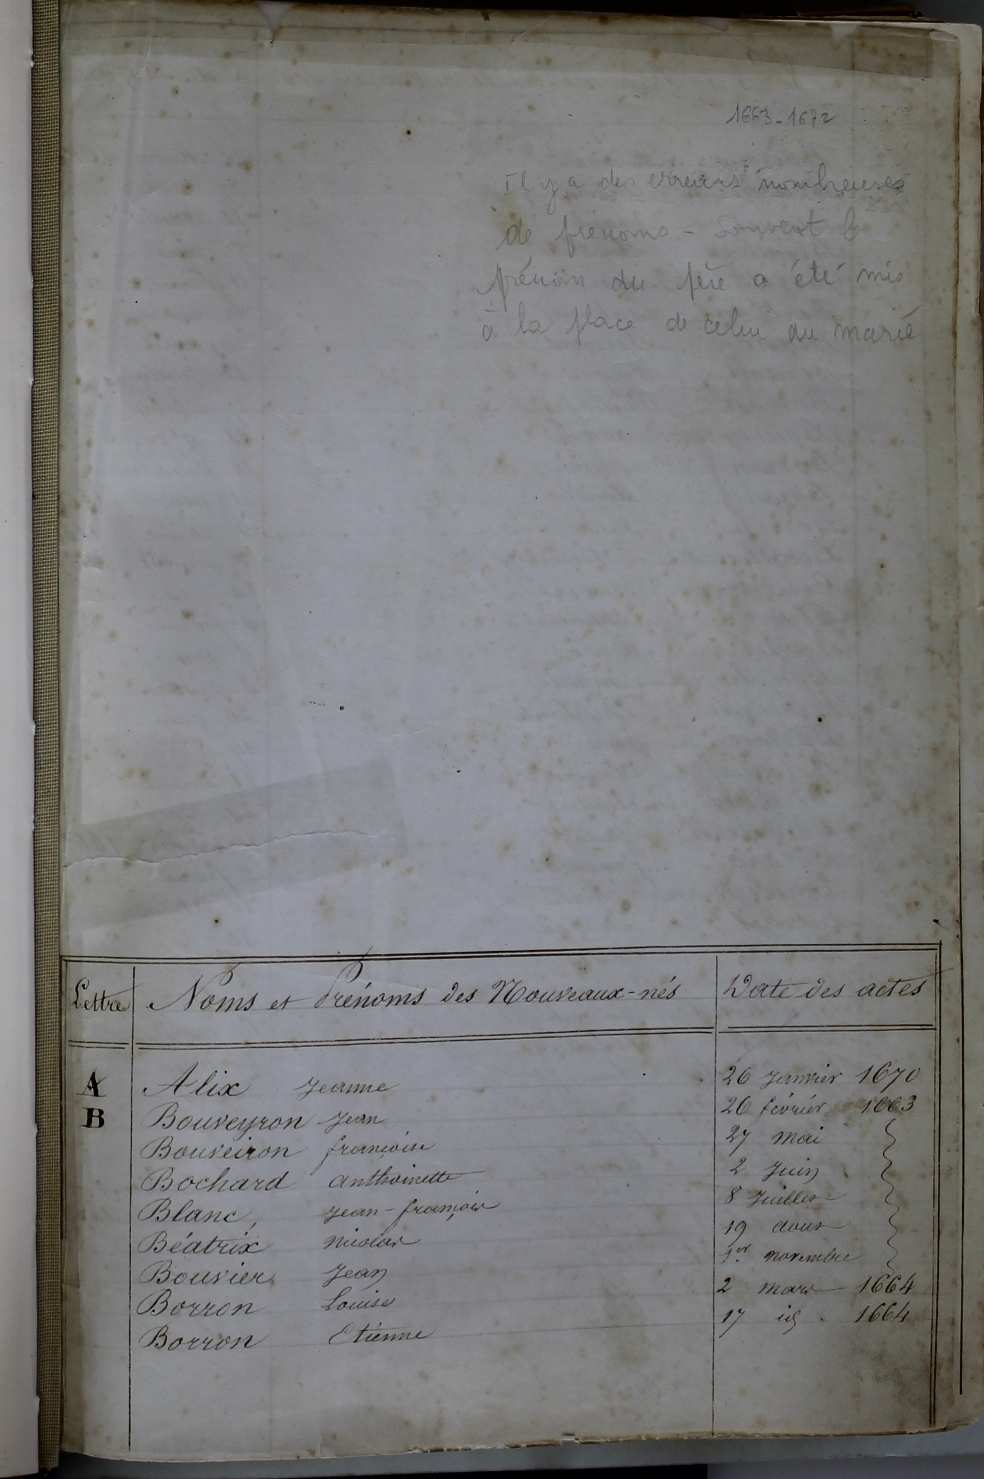 1663-1672
il y a des erreurs nombreuses
de prénoms - souvent le
prénom du père a été mis
à la place de celui du marié
Lettre Noms et Prénoms des Nouveaux-nés Date des actes
A Alix Jeanne 26 Janvier 1670
B Bouveyron Jean 26 février 1663
Bouveiron françoise 27 mai
Bochard anthoinette 2 Juin
Blanc, Jean-françois 8 Juillet
Béatrix nicolas 19 aout
Bouvier Jean 1er novembre
Borron Louise 2 mars 1664
Borron Etienne 17 id. 1664